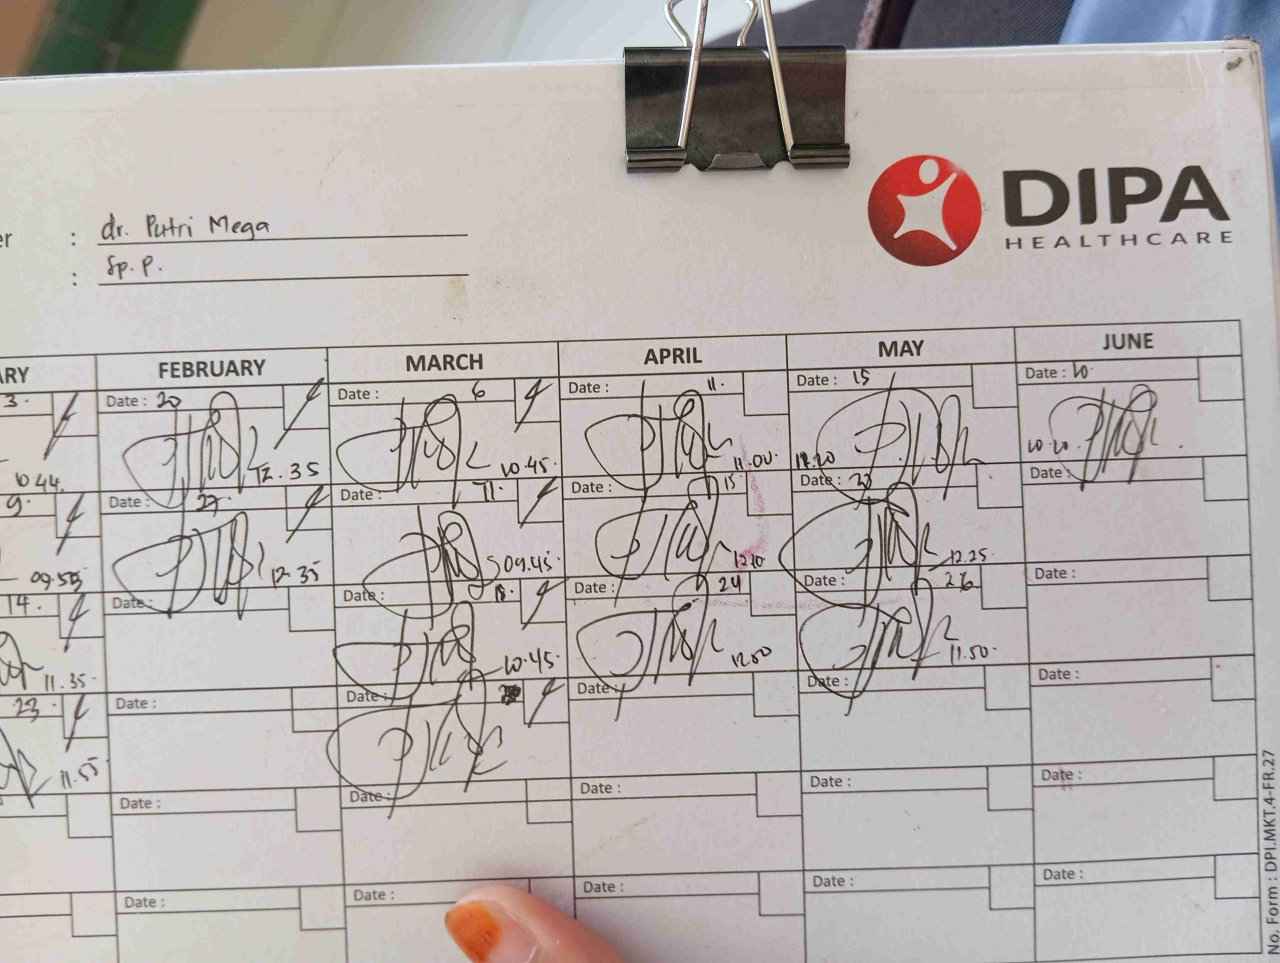 DIPA
HEALTHCARE
er : dr. Putri Mega
: Sp. P.
ARY FEBRUARY MARCH APRIL MAY JUNE
3. Date : 20 Date : 6 Date : 11. Date : 15 Date : 10.
10.44 12.35 10.45. 11.00. 12.20 10.20.
9. Date : 27. Date : 11. Date : 15 Date : 20 Date :
09.55 12.35 09.45. 12.10 12.25
14. Date : Date : 18. Date : 24 Date : 26 Date :
11.35 10.45. 12.50 11.50.
23. Date : Date : Date : Date : Date :
11.55
Date : Date : Date : Date : Date :
Date : Date : Date : Date : Date :
No. Form : DPI.MKT.4-FR.27